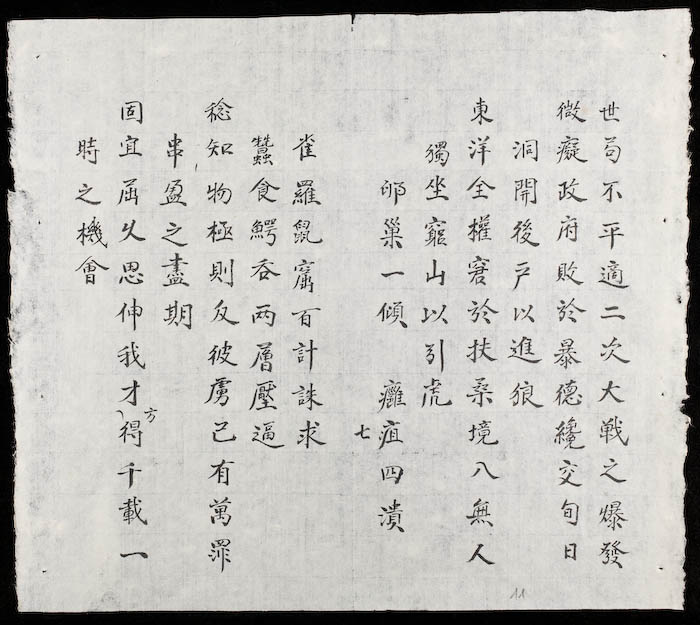 世苟不平適二次大戦之爆發
微癡政府敗於暴德纔交旬日
洞開後戸以進狼
東洋全權窘於扶桑境八無人
獨坐窮山以引虎
卵巢一傾癰疽四潰
七
雀羅鼠窟百計誅求
蠶食鰐吞两層壓逼
稔知物極則反彼虜已有萬罪
串盈之盡期
固宜屈久思伸我才方得千載一
時之機會
11